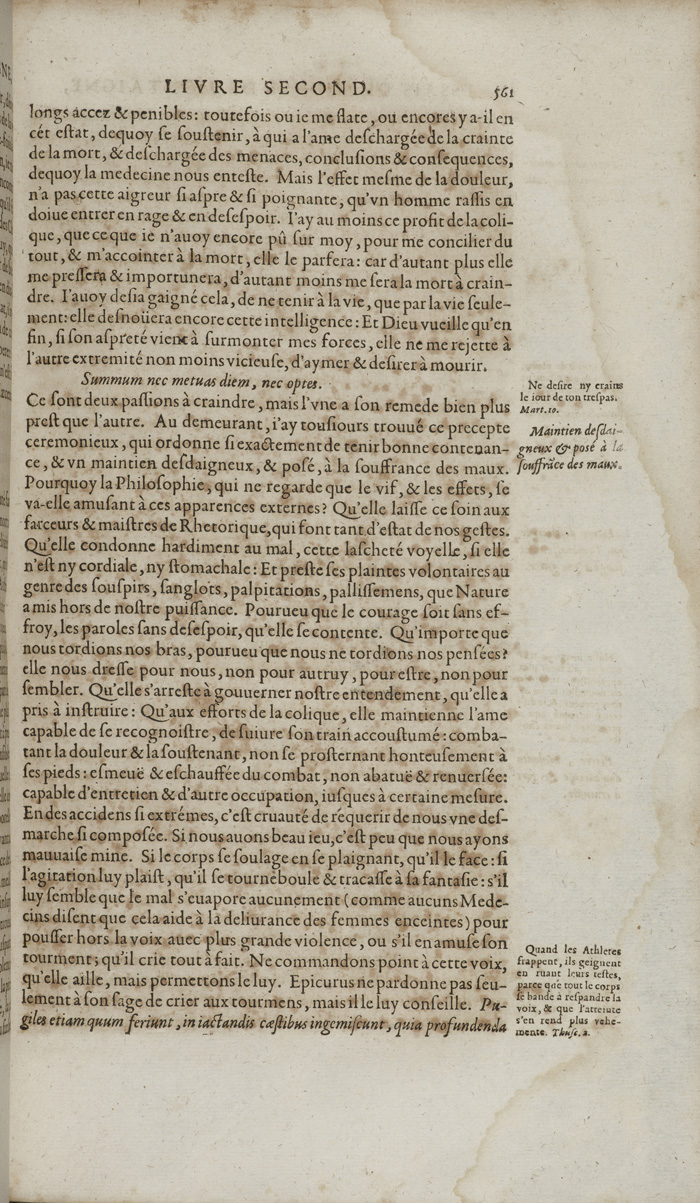 LIVRE SECOND. 561
longs accez & penibles: toutefois ou ie me flate, ou encores y a-il en
cét estat, dequoy se soustenir, à qui a l'ame deschargée de la crainte
de la mort, & deschargée des menaces, conclusions & consequences,
dequoy la medecine nous enteste. Mais l'effet mesme de la douleur,
n'a pas cette aigreur si aspre & si poignante, qu'vn homme rassis en
doiue entrer en rage & en desespoir. I'ay au moins ce profit de la coli-
que, que ce que ie n'auoy encore pû sur moy, pour me concilier du
tout, & m'accointer à la mort, elle le parfera: car d'autant plus elle
me pressera & importunera, d'autant moins me sera la mort à crain-
dre. I'auoy desia gaigné cela, de ne tenir à la vie, que par la vie seule-
ment: elle desnoüera encore cette intelligence: Et Dieu vueille qu'en
fin, si son aspreté vient à surmonter mes forces, elle ne me rejette à
l'autre extremité non moins vicieuse, d'aymer & desirer à mourir.
Summum nec metuas diem, nec optes.
Ce sont deux passions à craindre, mais l'vne a son remede bien plus
prest que l'autre. Au demeurant, i'ay tousiours trouué ce precepte
ceremonieux, qui ordonne si exactement de tenir bonne contenan-
ce, & vn maintien desdaigneux, & posé, à la souffrance des maux.
Pourquoy la Philosophie, qui ne regarde que le vif, & les effets, se
va-elle amusant à ces apparences externes? Qu'elle laisse ce soin aux
farceurs & maistres de Rhetorique, qui font tant d'estat de nos gestes.
Qu'elle condonne hardiment au mal, cette lascheté voyelle, si elle
n'est ny cordiale, ny stomachale: Et preste ses plaintes volontaires au
genre des souspirs, sanglots, palpitations, pallissemens, que Nature
a mis hors de nostre puissance. Pourueu que le courage soit sans ef-
froy, les paroles sans desespoir, qu'elle se contente. Qu'importe que
nous tordions nos bras, pourueu que nous ne tordions nos pensées?
elle nous dresse pour nous, non pour autruy, pour estre, non pour
sembler. Qu'elle s'arreste à gouuerner nostre entendement, qu'elle a
pris à instruire: Qu'aux efforts de la colique, elle maintienne l'ame
capable de se recognoistre, de suiure son train accoustumé: comba-
tant la douleur & la soustenant, non se prosternant honteusement à
ses pieds: esmeuë & eschauffée du combat, non abatuë & renuersée:
capable d'entretien & d'autre occupation, iusques à certaine mesure.
En des accidens si extrémes, c'est cruauté de requerir de nous vne des-
marche si composée. Si nous auons beau ieu, c'est peu que nous ayons
mauuaise mine. Si le corps se soulage en se plaignant, qu'il le face: si
l'agitation luy plaist, qu'il se tourneboule & tracasse à sa fantasie: s'il
luy semble que le mal s'euapore aucunement (comme aucuns Mede-
cins disent que cela aide à la deliurance des femmes enceintes) pour
pousser hors la voix auec plus grande violence, ou s'il en amuse son
tourment; qu'il crie tout à fait. Ne commandons point à cette voix,
qu'elle aille, mais permettons le luy. Epicurus ne pardonne pas seu-
lement à son sage de crier aux tourmens, mais il le luy conseille. Pu-
giles etiam quum feriunt, in iactandis cæstibus ingemiscunt, quia profundenda
Ne desire ny crains
le iour de ton trespas.
Mart. 10.
Maintien desdai-
gneux & posé à la
souffrãce des maux.
Quand les Athletes
frappent, ils geignent
en ruant leurs testes,
parce que tout le corps
se bande à respandre la
voix, & que l'atteinte
s'en rend plus vehe-
mente. Thusc. 2.